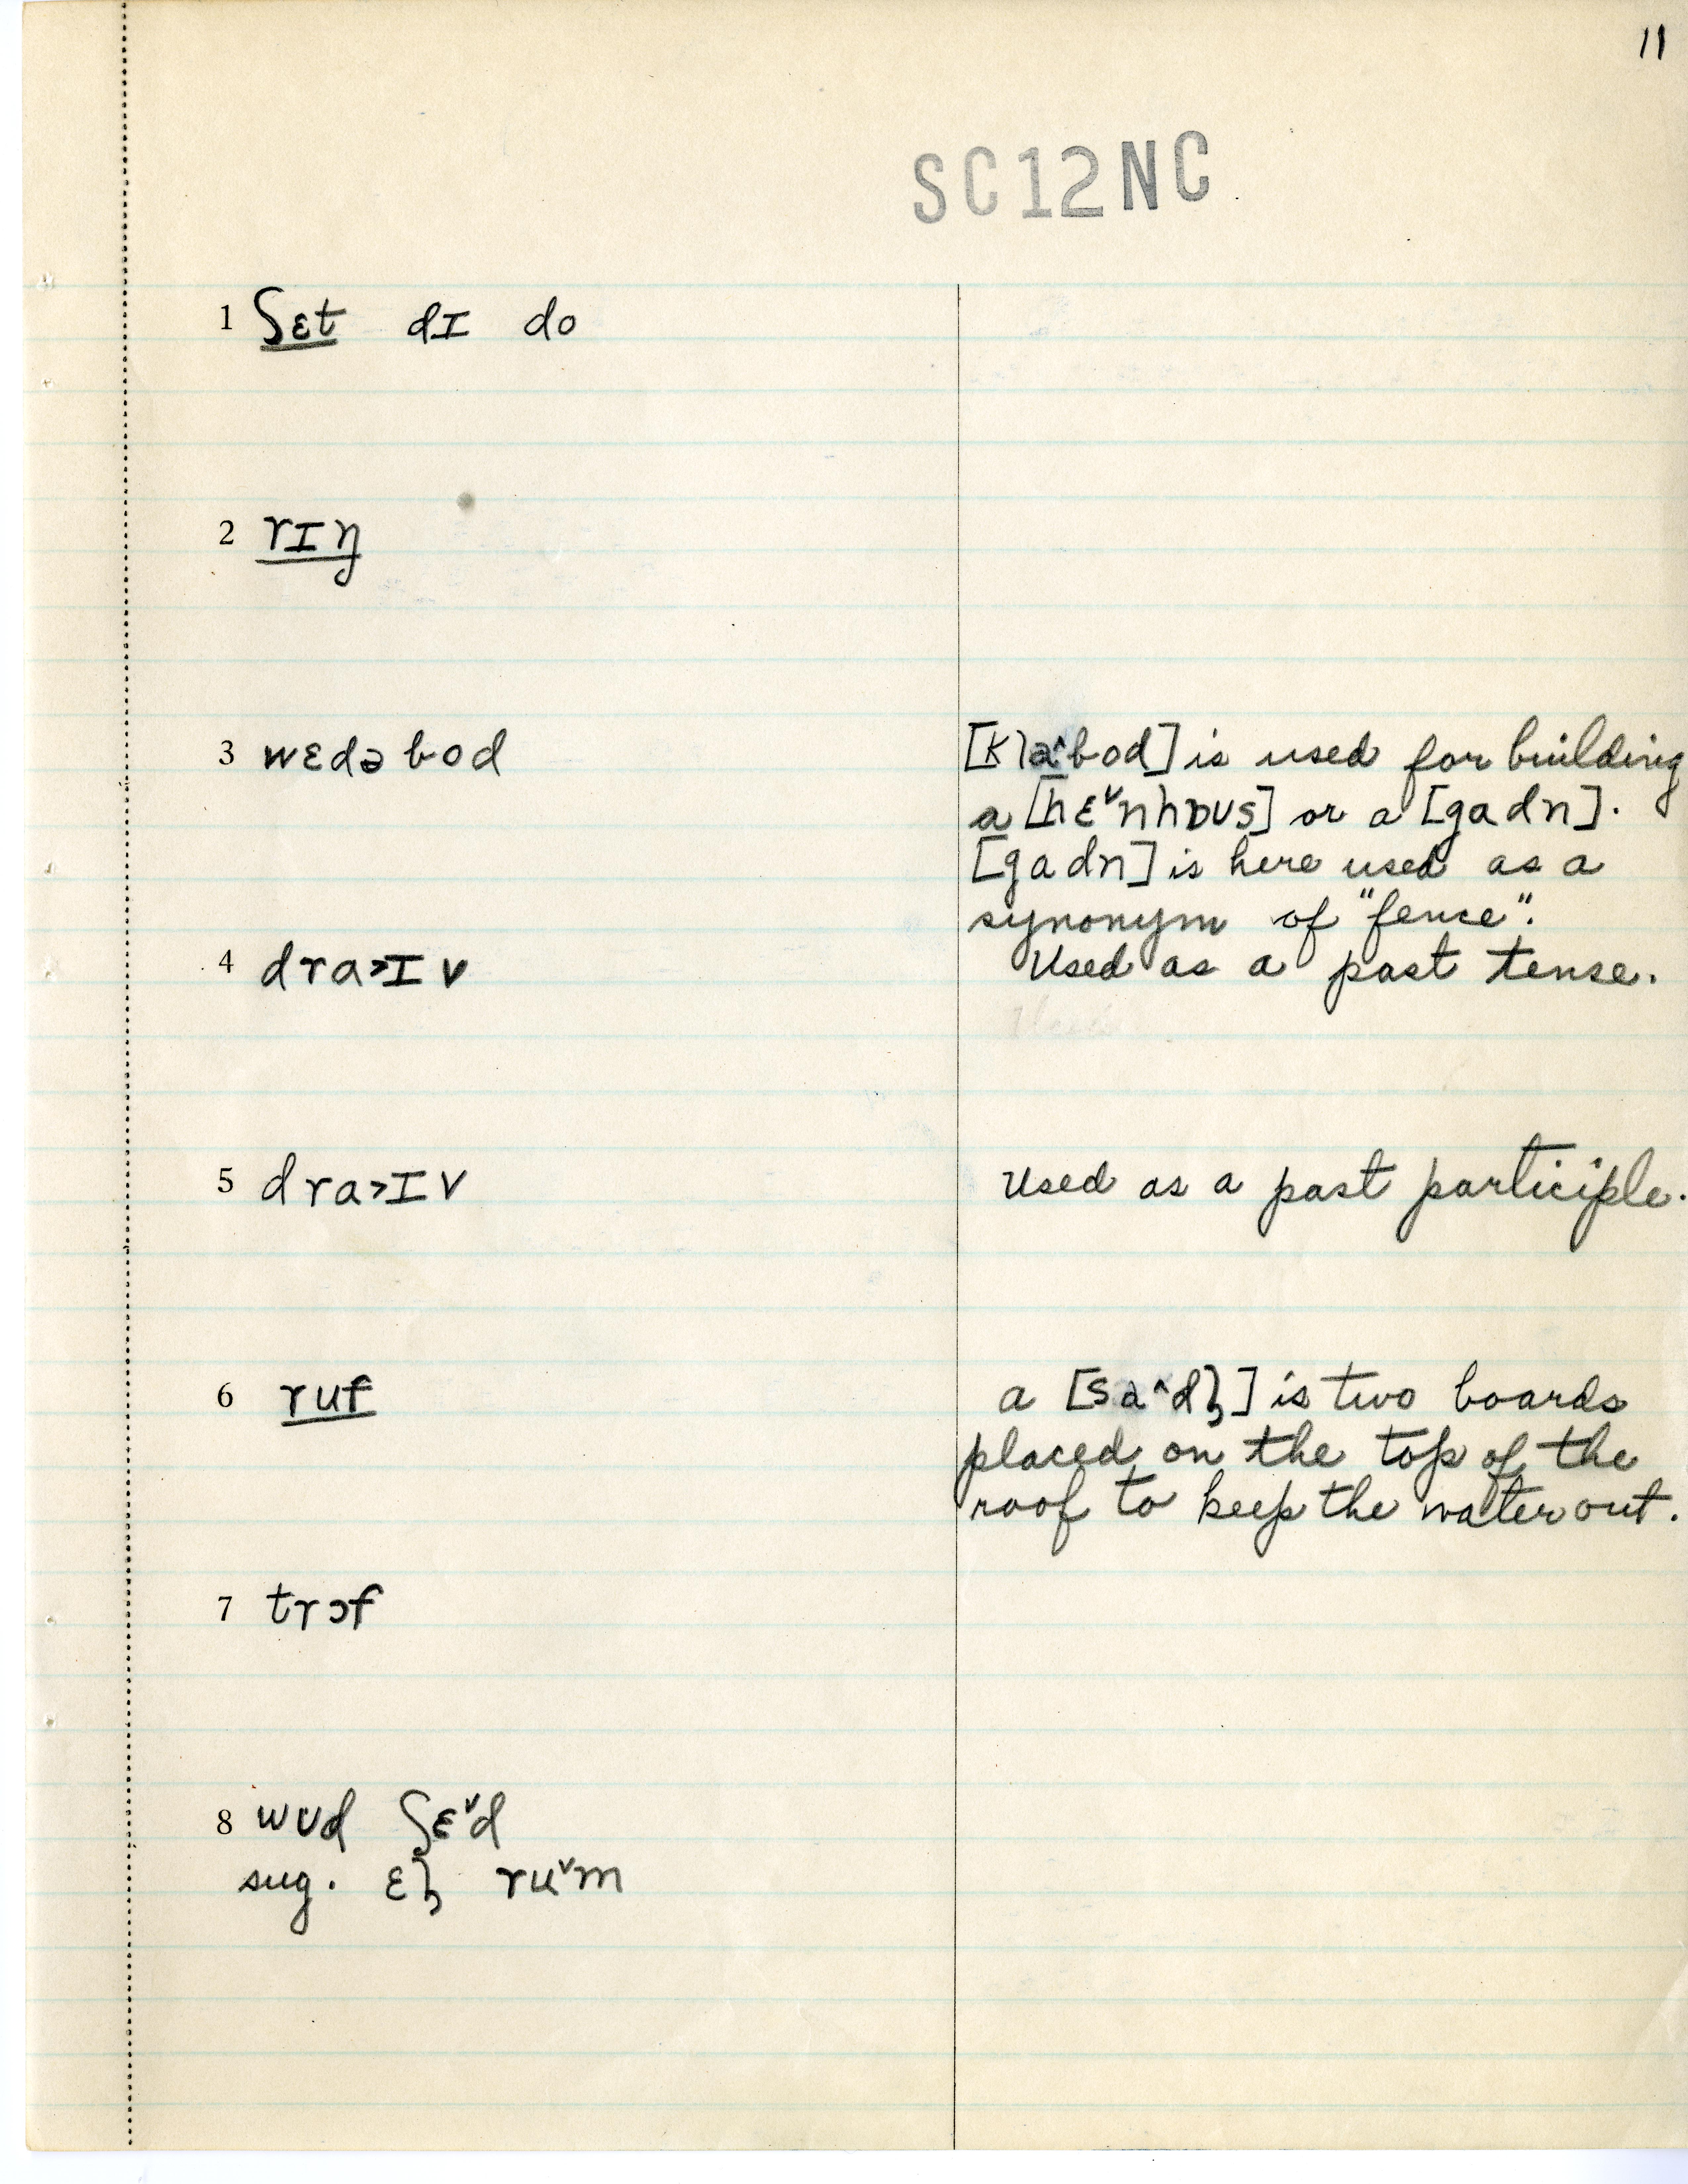 11
SC12NC
1 ʃɛt dɪ do
2 rɪŋ
3 wɛdə bod
[klaˆbod] is used for building
a [hɛˇnhɒʊs] or a [gadn].
[gadn] is here used as a
synonym of "fence".
4 dra>ɪv
Used as a past tense.
5 dra>ɪv
Used as a past participle.
6 ruf
a [saˆdl̩] is two boards
placed on the top of the
roof to keep the water out.
7 trɔf
8 wʊd ʃɛˇd
sug. ɛl̩ ruˇm